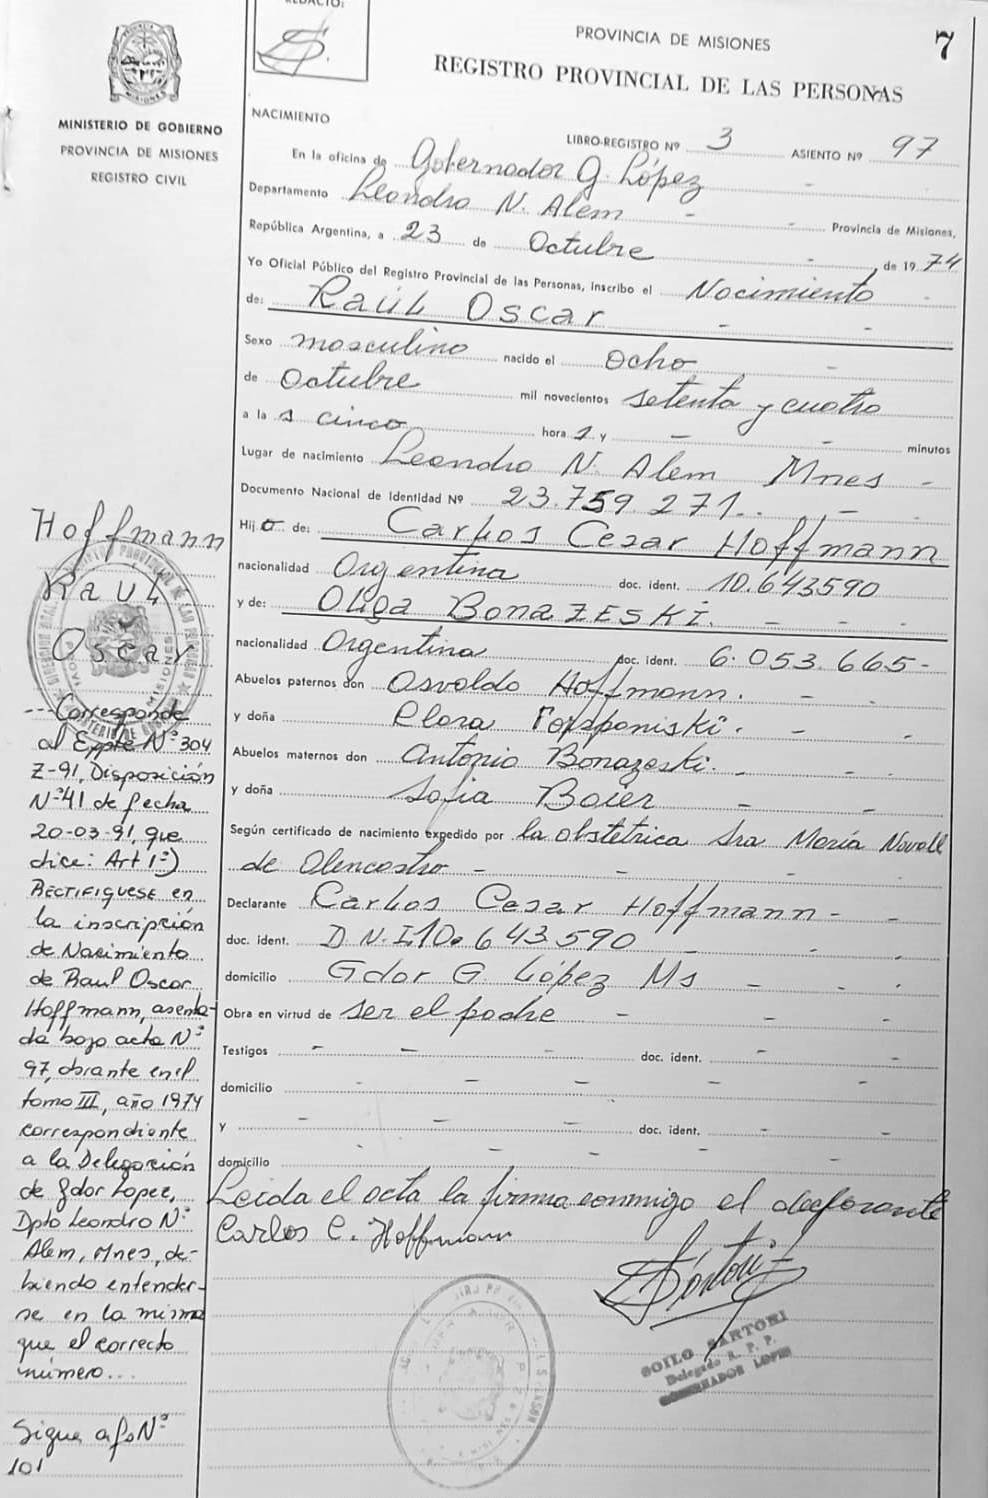 REDACTO:
PROVINCIA DE MISIONES
7
REGISTRO PROVINCIAL DE LAS PERSONAS
MINISTERIO DE GOBIERNO
PROVINCIA DE MISIONES
REGISTRO CIVIL
NACIMIENTO
LIBRO-REGISTRO Nº 3 ASIENTO Nº 97
En la oficina de Gobernador G. López
Departamento Leandro N. Alem - - Provincia de Misiones,
República Argentina, a 23 de Octubre - , de 1974
Yo Oficial Público del Registro Provincial de las Personas, inscribo el Nacimiento -
de: Raúl Oscar - -
Sexo masculino nacido el ocho -
de Octubre mil novecientos setenta y cuatro
a las cinco hora s y - - minutos
Lugar de nacimiento Leandro N. Alem Mnes -
Documento Nacional de Identidad Nº 23.759.271.. - -
Hijo de: Carlos Cesar Hoffmann
nacionalidad Argentina doc. ident. 10.643590
y de: Olga BonaZESKI. - - -
nacionalidad Argentina doc. ident. 6.053.665-
Abuelos paternos don Osvaldo Hoffmann. -
y doña Elora - -
Abuelos maternos don Antonio Bonazeski. - - -
y doña Sofia Boier - -
Según certificado de nacimiento expedido por la obstetrica Sra María
de Olencastro - - -
Declarante Carlos Cesar Hoffmann - -
doc. ident. D.N.I.10.643.590 - -
domicilio Gdor G. López Ms - - -
Obra en virtud de ser el padre - - -
Testigos - - - doc. ident. - -
domicilio - - - - -
y - - - - doc. ident. - -
domicilio - - - -
Leida el acta la firma conmigo el declarante
Carlos C. Hoffmann
Sartori
SOILO SARTORI
Delegado R. P. P.
GOBERNADOR LOPEZ
Hoffmann
Raul
Oscar
---Corresponde
al Eppte Nº 304
Z-91, Disposición
Nº41 de fecha
20-03-91, que
dice: Art 1º)
RECTIFIQUESE en
la inscripción
de Nacimiento
de Raul Oscar
Hoffmann, asenta-
da bajo acta Nº
97, obrante en el
tomo III, año 1974
correspondiente
a la Delegación
de Gdor Lopez,
Dpto Leandro N.
Alem, Mnes, de-
biendo entender-
se en la misma
que el correcto
número...
Sigue a fo Nº
101